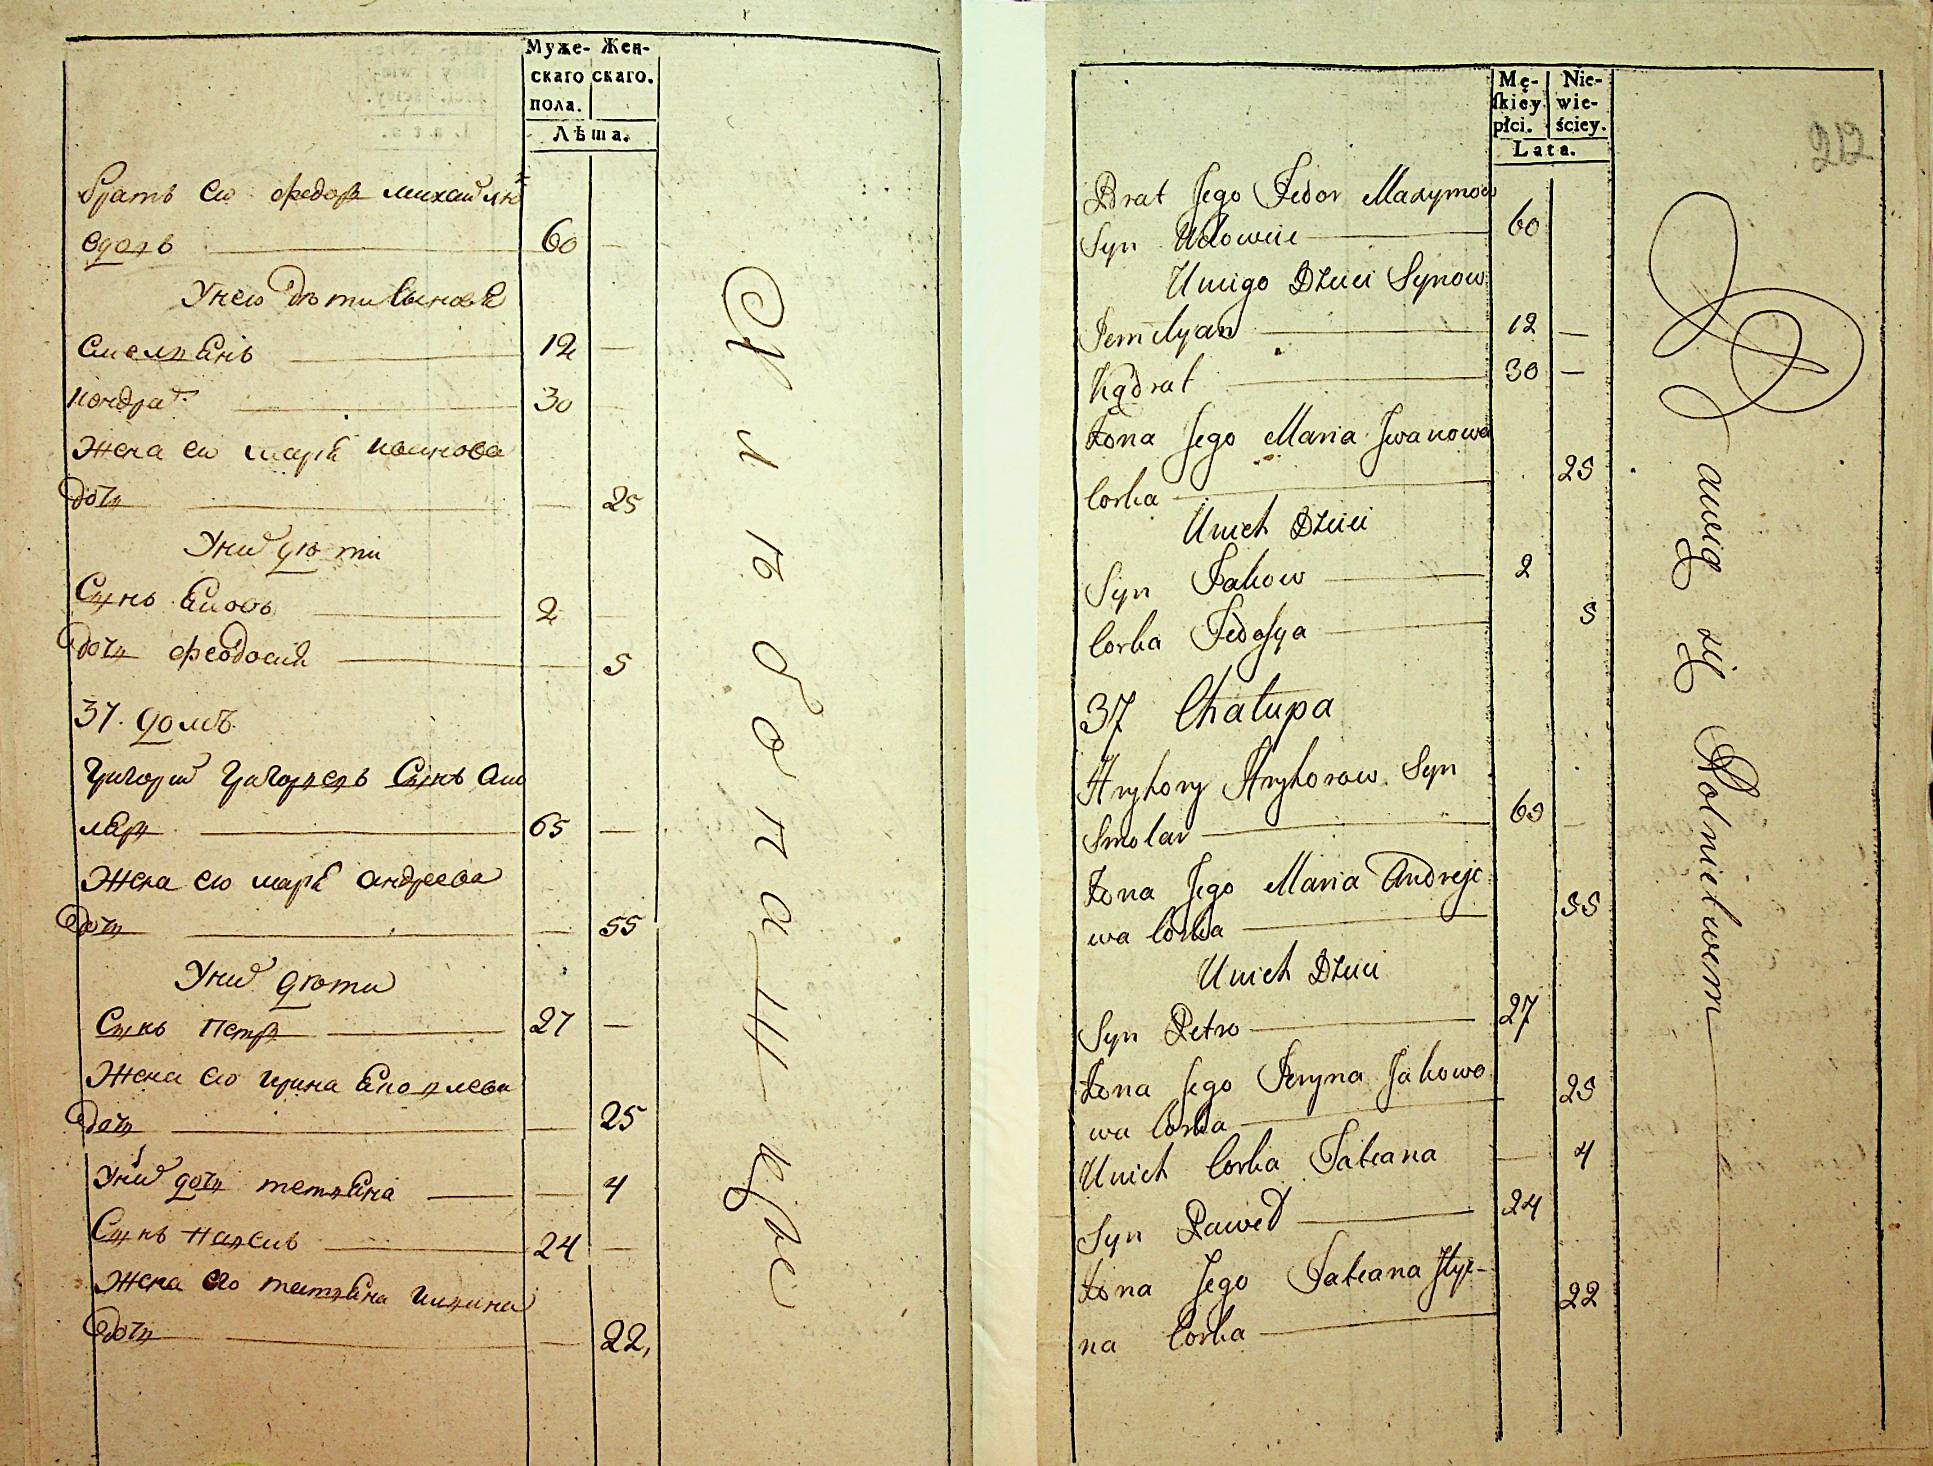 Муже- Жен-
скаго скаго.
пола.
Лѣта.
братъ его федоръ
вдовъ 60 —
У него дѣти сыновя
емелянъ 12 —
Кондратъ 30 —
Жена его марія иванова
дочь — 25
У них дѣти
Сынъ Яковъ 2 —
дочь феодосия — 5
37. домъ
Григорий Григорьевъ Сынъ смо
ляръ 65 —
Жена его марія андреева
дочь — 55
У них дѣти
Сынъ Петръ 27 —
Жена его ирина Яковлева
дочь — 25
У них дочь татьяна — 4
Сынъ Павелъ 24 —
Жена его татьяна ильина
дочь — 22,
Mę- Nie-
skiey wie-
płci. ściey.
Lata.
212
Brat Jego Fedor Maxymow
Syn Wdowiec 60
U niego Dzieci Synow
Jemelyan 12 —
Kądrat 30 —
Żona Jego Maria Jwanowa
Corka 25
U nich Dzieci
Syn Jakow 2
Corka Fedosya 5
37 Chałupa
Hryhory Hryhorow Syn
Smolar 65 —
Żona Jego Maria Andreje
wa Corka 55
U nich Dzieci
Syn Petro 27
Żona Jego Jeryna Jakowo
wa Corka 25
U nich Corka Tatiana — 4
Syn Paweł 24
Żona Jego Tatiana Jlyi-
na Corka 22
Bawią się Rolnictwem